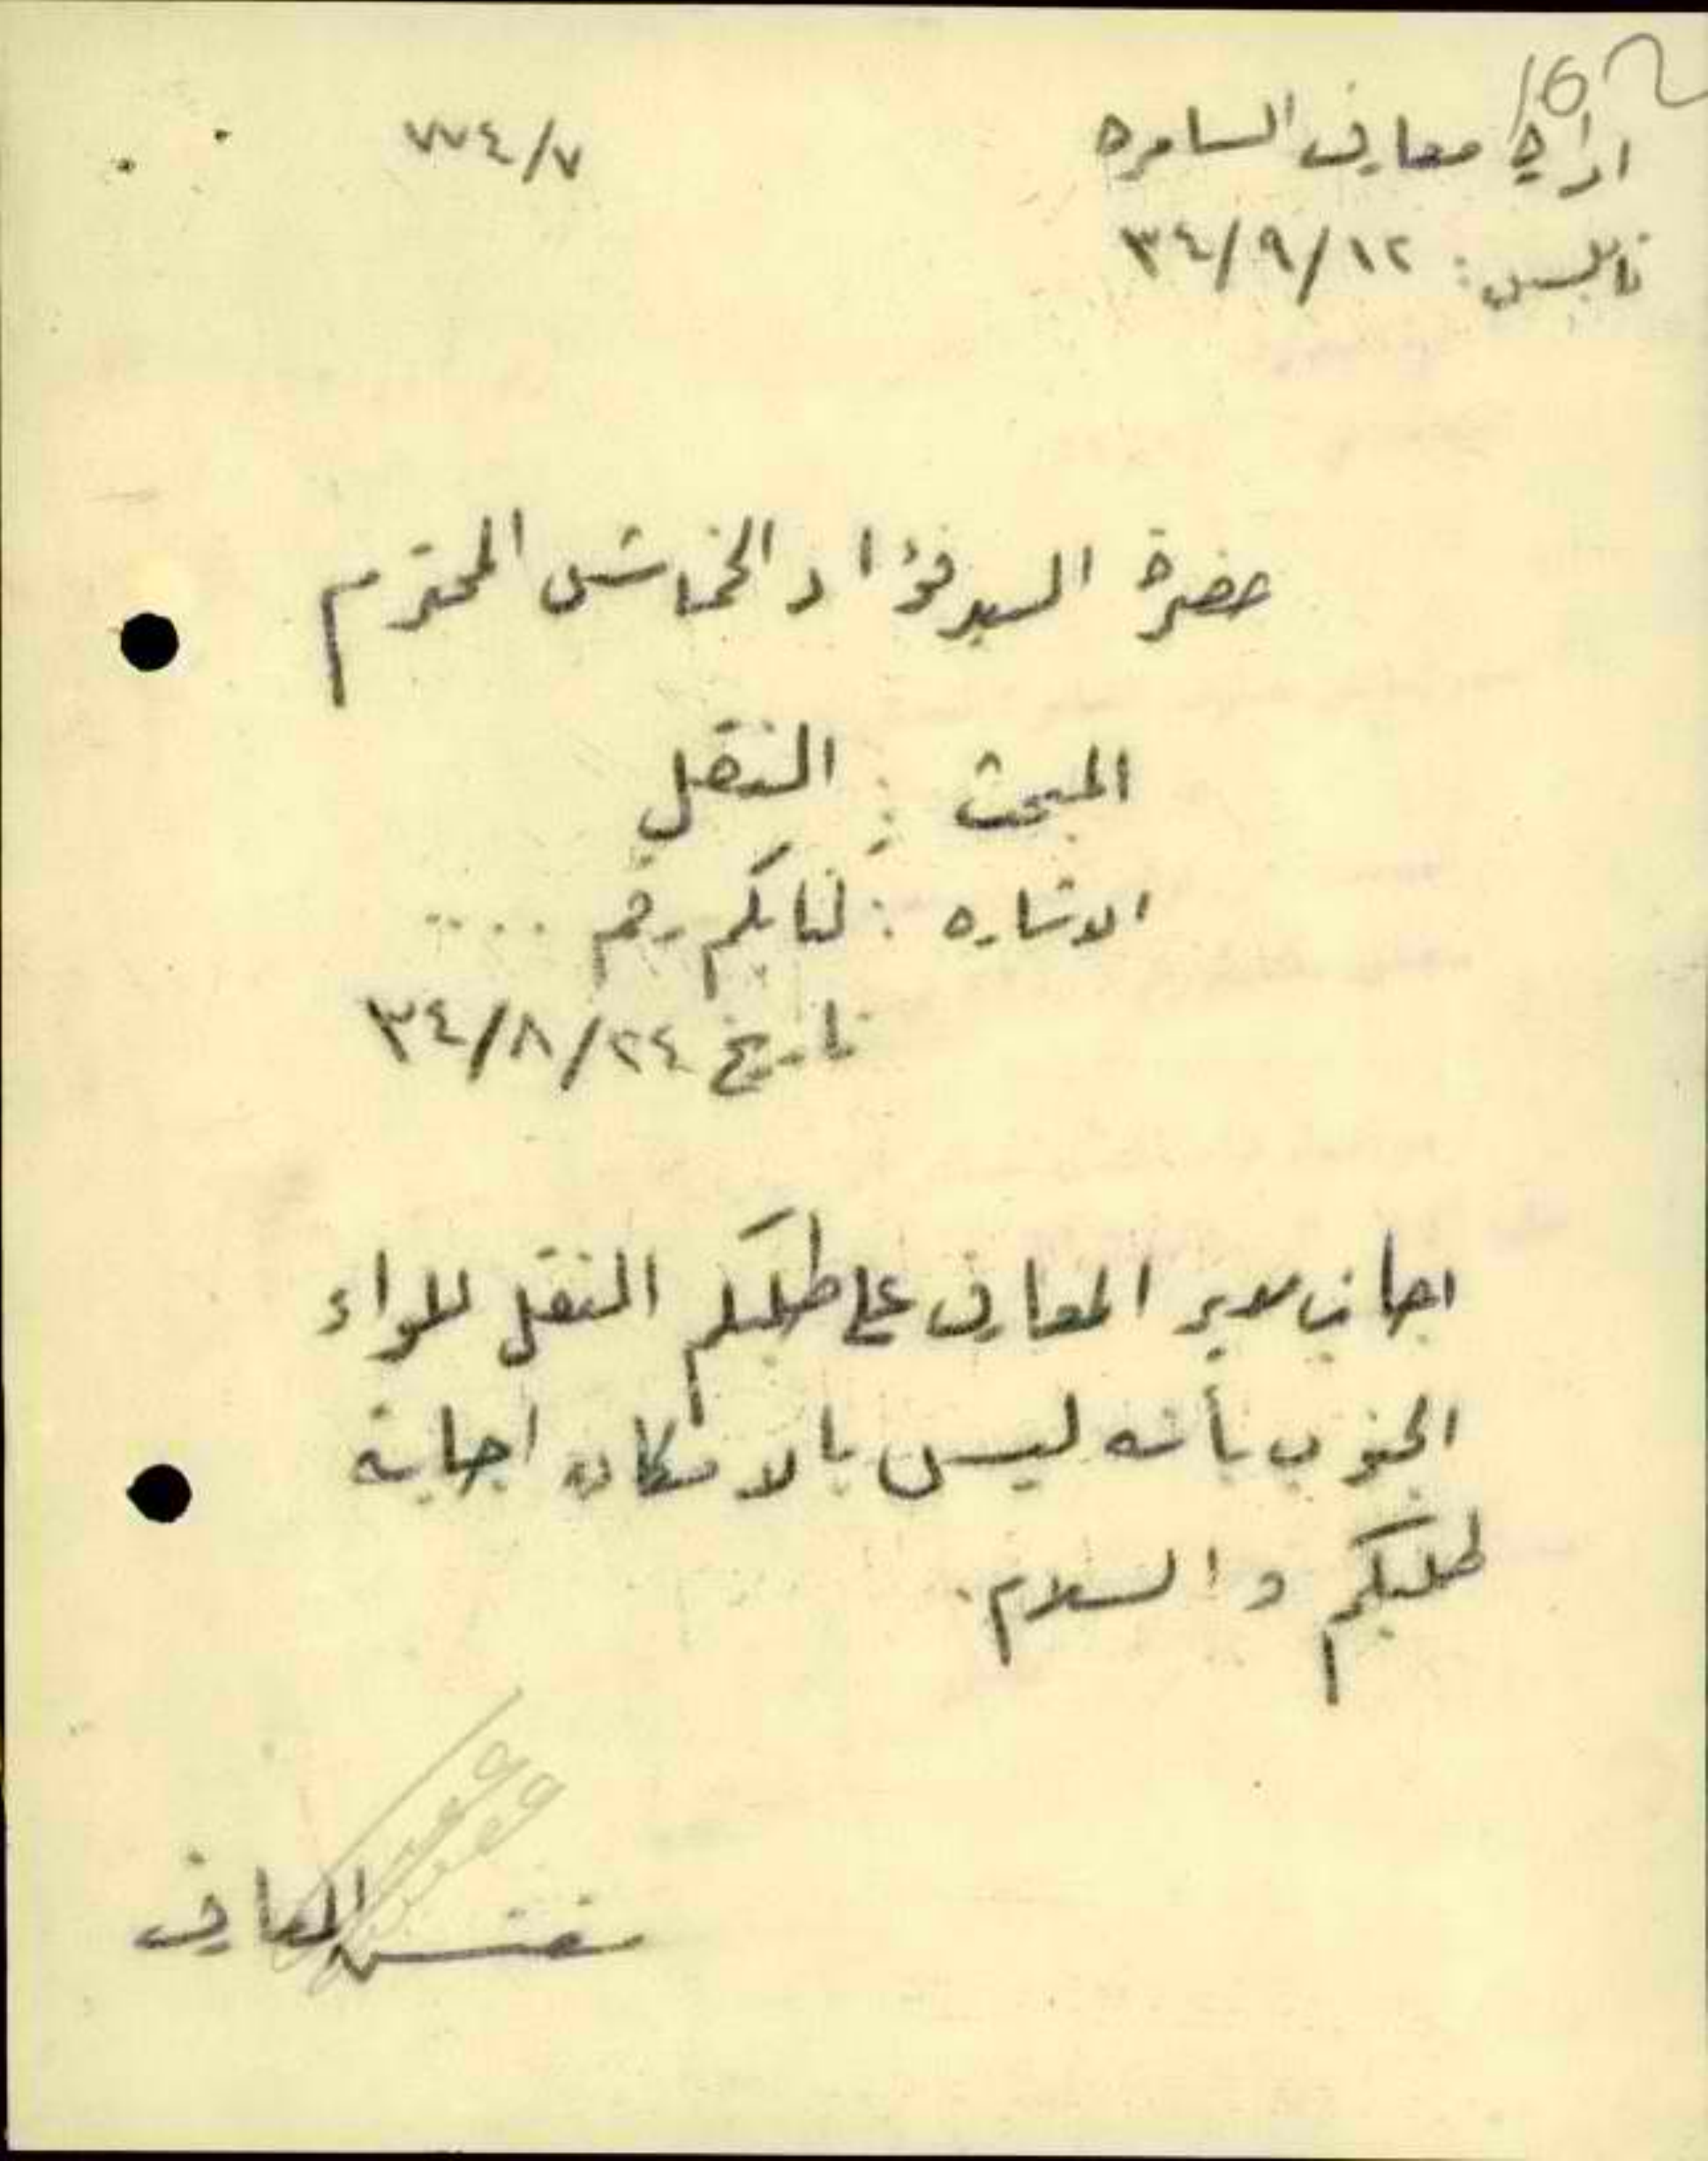 162
ادارة معارف السامره
٧٧٤/٧
نابلس: ٣٤/٩/١٢
حضرة السيد فؤاد الخماش المحترم
المبحث : النقل
الاشاره : كتابكم رقم ....
تاريخ ٣٤/٨/٢٤
اجاب مدير المعارف على طلبكم النقل للواء
الجنوب بأنه ليس بالامكان اجابة
طلبكم والسلام.
مفتش المعارف